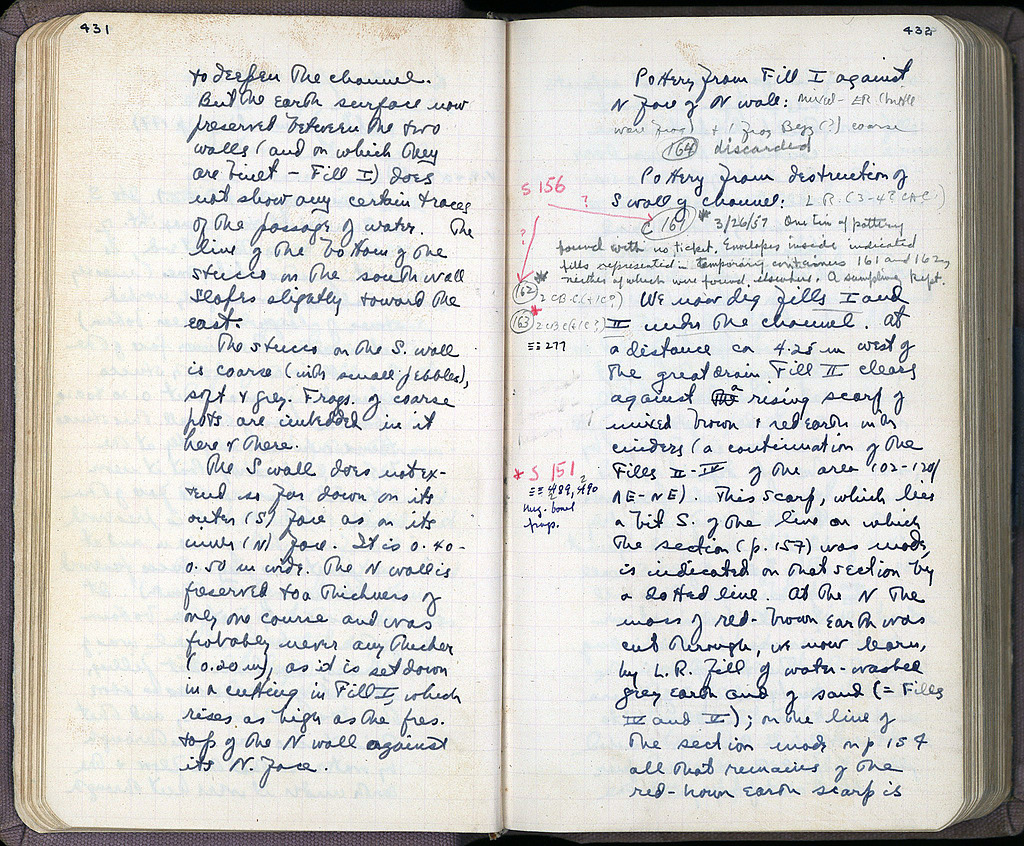 431
to deepen the channel.
But the earth surface now
preserved between the two
walls (and on which they
are built - Fill I) does
not show any certain traces
of the passage of water. The
line of the bottom of the
stucco on the south wall
slopes slightly toward the
east.
The stucco on the S. wall
is coarse (with small pebbles),
soft & grey. Frags. of coarse
pots are imbedded in it
here & there.
The S wall does not ex-
tend so far down on its
outer (S) face as on its
inner (N) face. It is 0.40-
0.50 m wide. The N wall is
preserved to a thickness of
only one course and was
probably never any thicker
(0.20 m), as it is set down
in a cutting in Fill I, which
rises as high as the pres.
top of the N wall against
its N. face.
432
Pottery from Fill I against
N face of N wall: mixed - ER (
ware frag) + 1 frag Byz (?) coarse
164 discarded
Pottery from destruction of
S wall of channel: L R. (3-4? C A.C.)
S 156
?
C 161 * 3/26/57 One tin of pottery
found with no ticket. Envelopes inside indicated
fills represented in temporary containers 161 and 162,
neither of which were found, elsewhere. A sampling kept.
?
*
162 2 C B.C. (+1C?)
We now dig fills I and
*
163 2 C B C (+1C?)
II under the channel. At
≡≡ 277
a distance ca 4.25 m west of
the great drain Fill II clears
against a rising scarf of
mixed brown & red earth with
cinders (a continuation of the
Fills II-IV of the area 102-120/
ΛE-NE). This scarf, which lies
* S 151
≡≡ 489, 490
Meg. bowl
frags.
a bit S. of the line on which
the section (p. 157) was made,
is indicated on that section by
a dotted line. At the N the
mass of red-brown earth was
cut through, we now learn,
by L.R. fill of water-washed
grey earth and of sand (= Fills
IV and V); on the line of
the section made on p 157
all that remains of the
red-brown earth scarf is